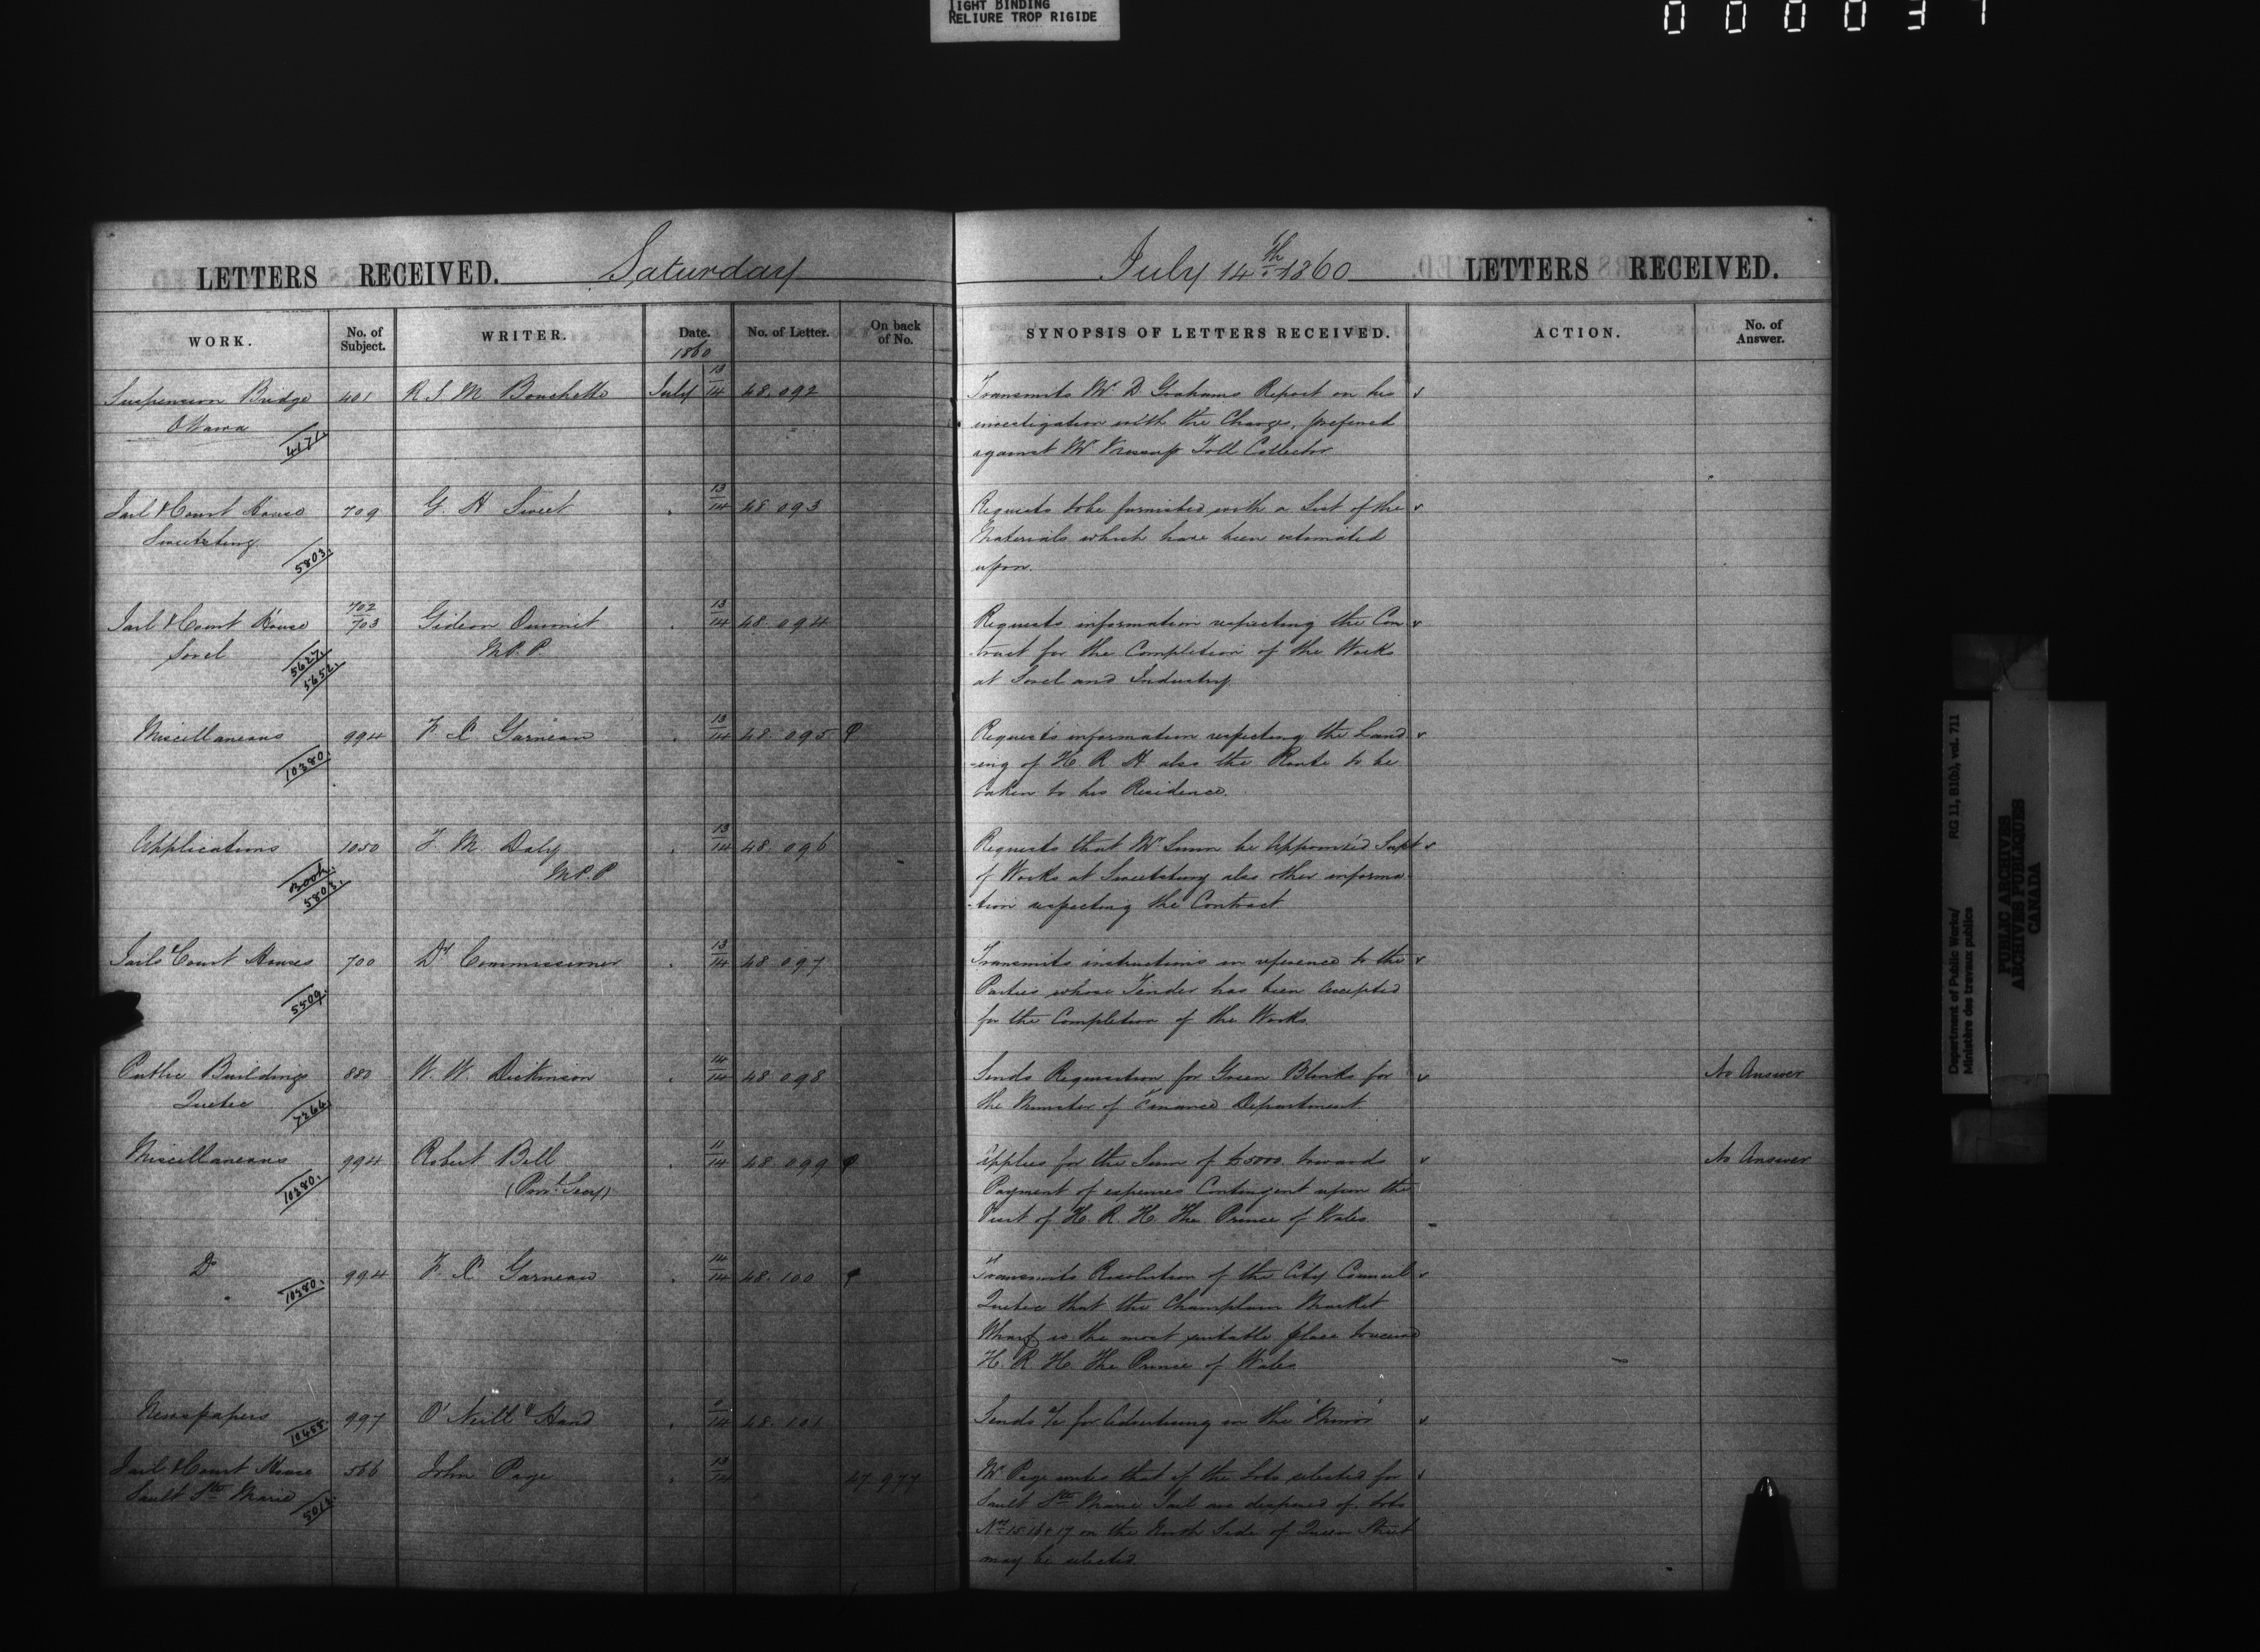 TIGHT BINDING
RELIURE TROP RIGIDE
LETTERS RECEIVED. Saturday July 14th 1860 LETTERS RECEIVED.
WORK. No. of Subject. WRITER. Date. No. of Letter. On back of No. SYNOPSIS OF LETTERS RECEIVED. ACTION. No. of Answer.
1860
Suspension Bridge 401 R. S. M. Bouchette July 13/14 48.092 Transmits Mr D Grahams Report on his
Ottawa investigation with the Charges, prefered
against Mr Toll Collector
Jail & Court House 709 G. H Sweet 13/14 48 093 Requests to be furnished with a List of the
Sweetsburg Materials which have been estimated
5803. upon.
Jail & Court House 702/703 Gideon Ouimet 13/14 48.094 Requests information respecting the Con
Sorel M.P.P. -tract for the Completion of the Works
5627. 5652. at Sorel and Industry
Miscellaneous 994 F. X. Garneau 13/14 48.095 Requests information respecting the Land
10380. -ing of H. R. H. also the Route to be
taken to his Residence.
Applications 1050 T. M. Daly 13/14 48.096 Requests that Mr be Appointed Supt
M.P.P of Works at Sweetsburg also other informa-
5803. -tion respecting the Contract
Jails & Court Houses 700 Dy Commissioner 13/14 48 097 Transmits instructions in reference to the
5509. Parties whose Tender has been Accepted
for the Completion of the Works
Public Buildings 880 W. W. Dickinson 14/14 48 098 Sends Requisition for Green Blinds for No Answer
Quebec 7266. the Minister of Finance Department
Miscellaneous 994 Robert Bell 11/14 48.099 Applies for the Sum of $5000 towards No Answer
10380. Payment of expenses Contingent upon the
Visit of H. R. H. The Prince of Wales
Do 994 F. X. Garneau 14/14 48.100 Transmits Resolution of the City Council
10380. Quebec that the Champlain Market
Wharf is the most suitable place to receive
H. R. H. The Prince of Wales
Newspapers 997 O'Neill & Hand 48.101 Sends a/c for Advertising in the
10455.
Jail & Court House 566 John Page 13/14 47.977 Mr Page writes that if the Lots selected for
Sault Ste Marie Sault Ste Marie Jail are disposed of, Lots
5012. Nos 15 16 & 17 on the North Side of Queen Street
may be selected
Department of Public Works/ RG 11, B1(b), vol. 711
Ministère des travaux publics
PUBLIC ARCHIVES
ARCHIVES PUBLIQUES
CANADA